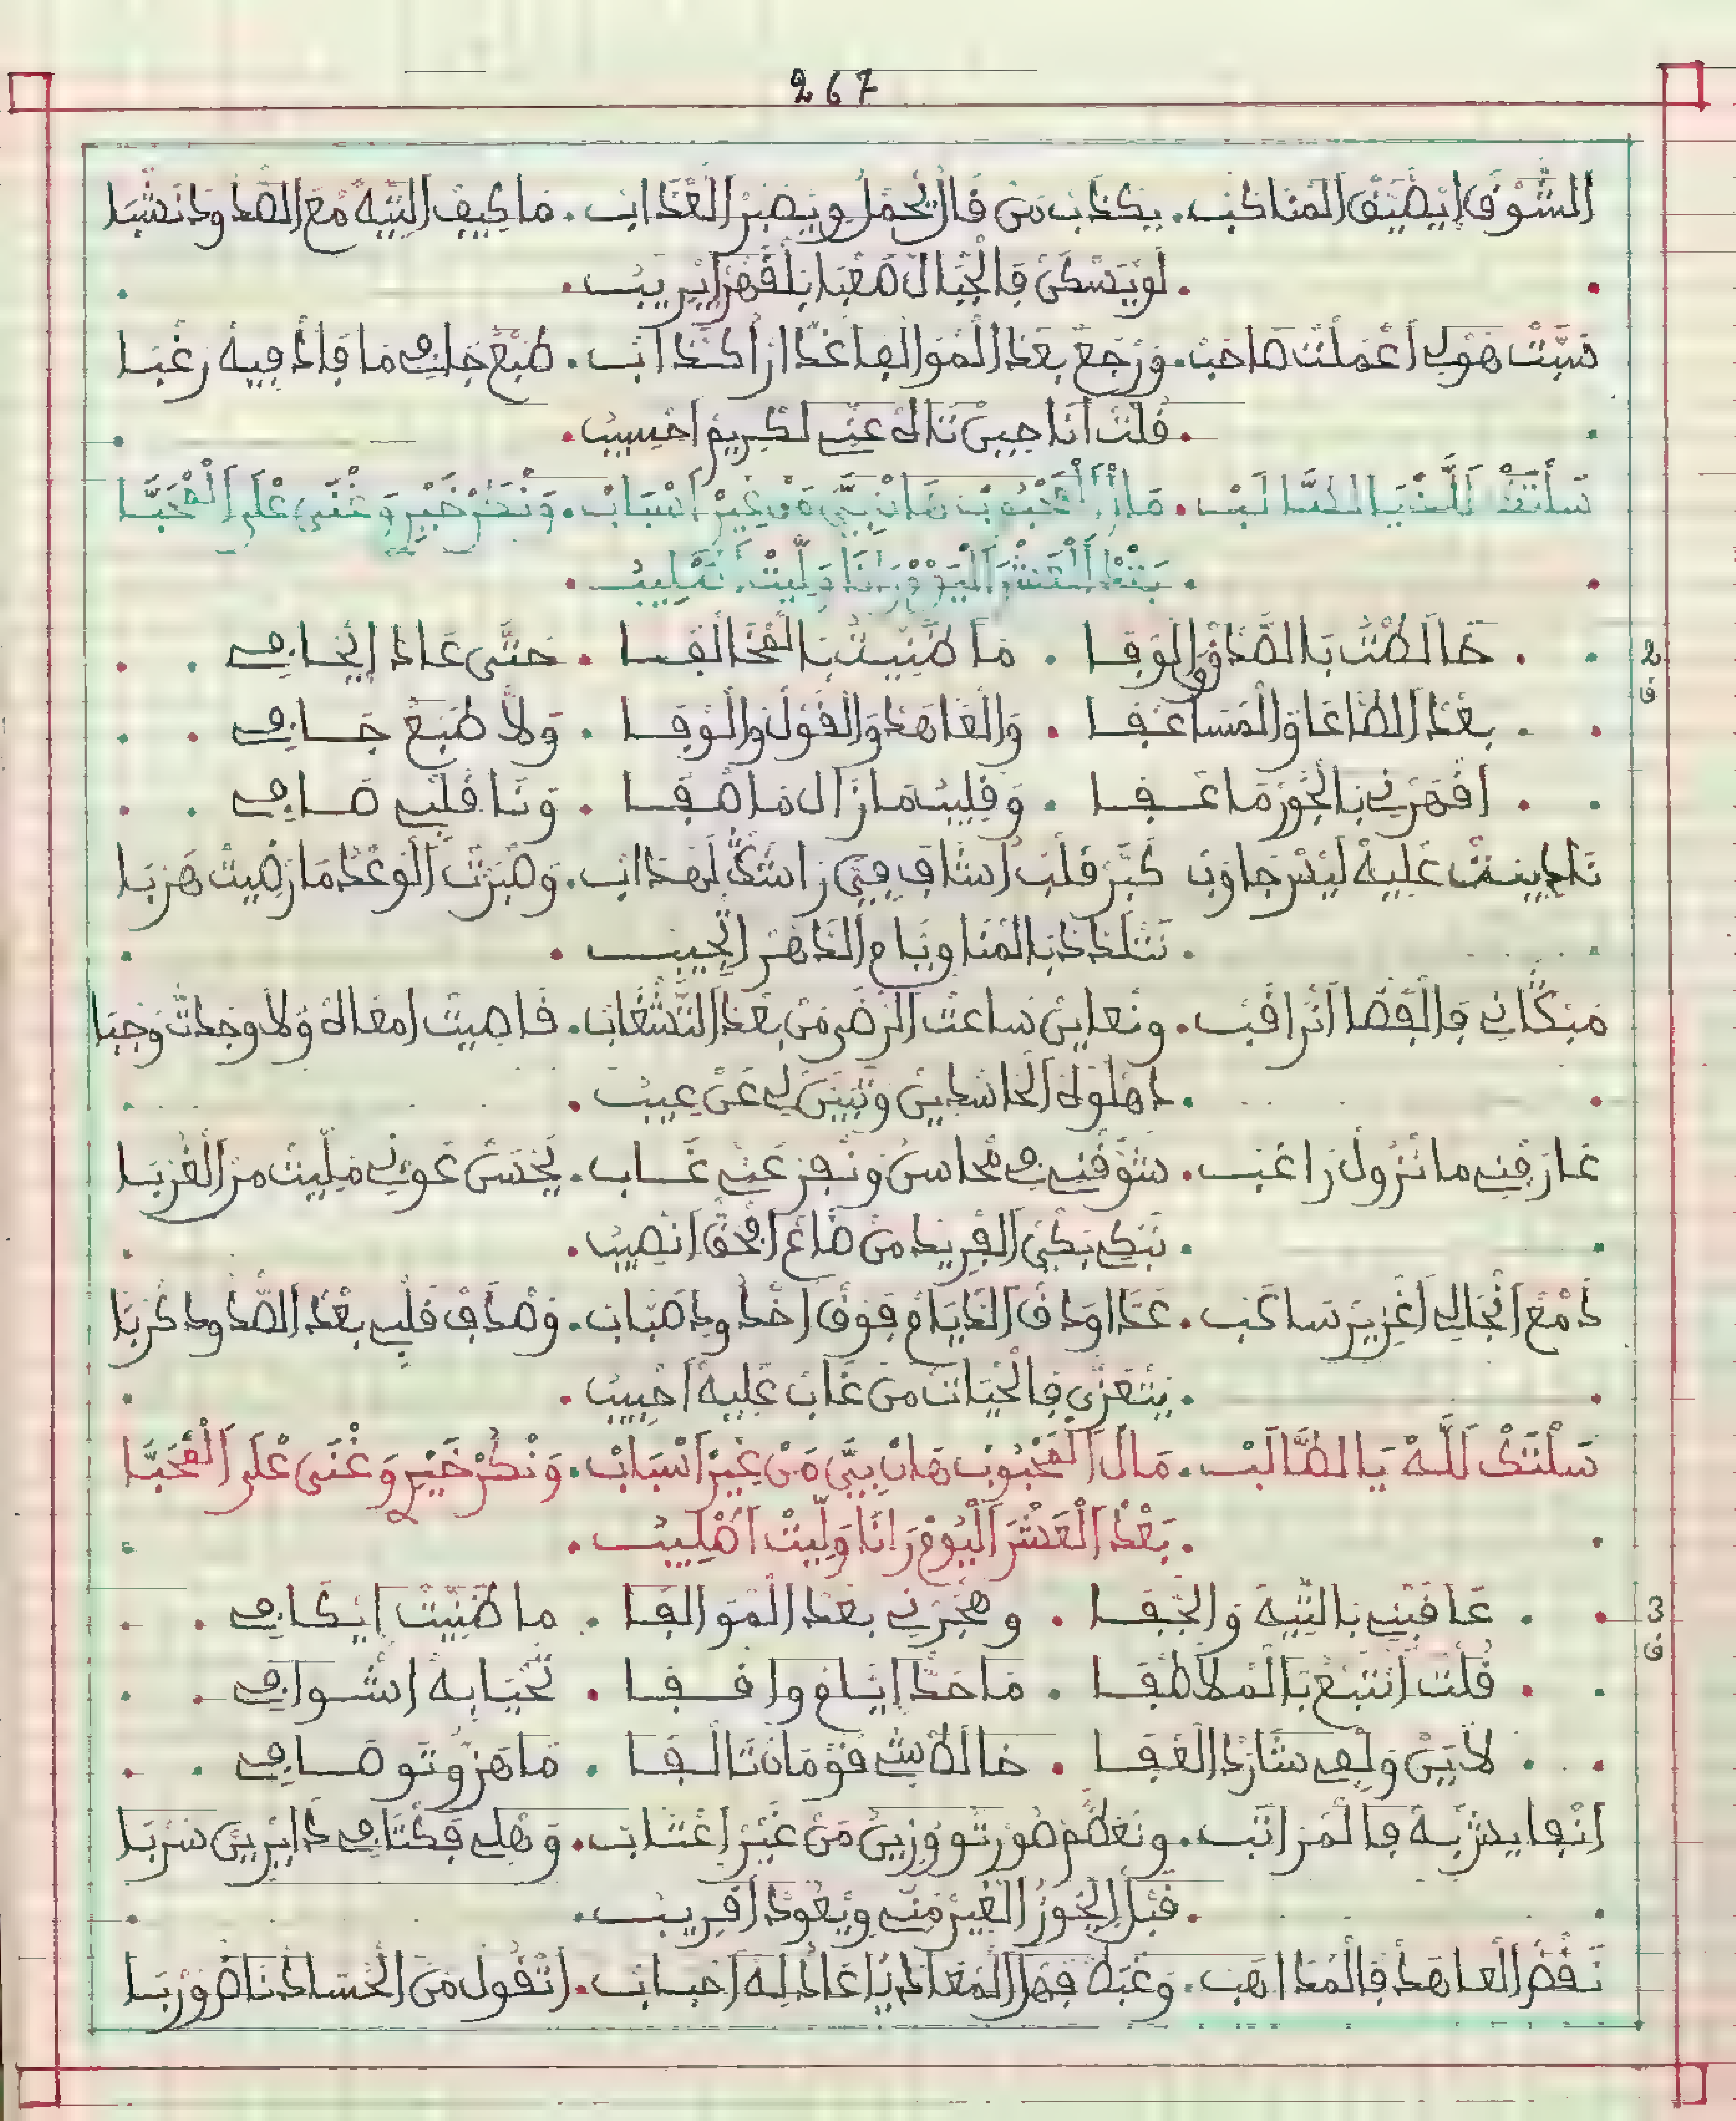 267
الشوق ايضيق المناكب. يكذب من قال يحمل ويصبر العذاب. ما كيف التيه مع الصدود نشبا
. لويسكن فالجبال صعبا بلقهر ايريب.
سبت هولي اعملت صاحب. ورجع بعد الموالفا غدار اكذاب. طبع جافي ما فاد فيه رغبا
. قلت انا حين ناله عني لكريم احسيب.
سلتك لله يا الطالب. مال المحبوب هان بي من غير اسباب. ونكر خير وغنى على المحبا
. بعد العشر اليوم رانا وليت اهليب.
2
. خالطت بالصدق والوفا . ما ظنيت بالمخالفا . حتى عاد ايخافي
ف
. بعد الطاعا والمساعفا . والعاهد والقول والوفا . ولا طبع جافي
. اقهرني بالجور ما عفا . وقليب مازال ما صفا . ونا قلبي صافي
ناديت عليه ليس جاوب كبر قلب اشاف فيي زاشك لهذاب. وصبرت الوعد ما رضيت هربا
. نتلذذ بالمنا ونيام الدهر اتجيب .
مبكاني فالقصا انراقب. ونعاين ساعت الرضى من بعد التشغاب. قاصيت امعاه ولا وجدت وجبا
. اهلوك الحاسدين وتبين لي عن عيب .
عارفني ما نزول راغب. شوقني في محاسن ونفر عني غاب. يحسن عوني مليت من الغربا
. نبكي بكي الفريد من ضاع امحق انصيب.
دمع انجالي اغزير ساكب. عدا ودق الديام فوق اخدود صباب. وصدف قلبي بعد الصدود كربا
. يتعزى فالحيات من غاب عليه احبيب .
سلتك لله يا الطالب. مال المحبوب هان بيي من غير اسباب. ونكر خير وغنى على المحبا
. بعد العشر اليوم رانا وليت اهليب .
3
. عاقبني بالتيه والجفا . وهجرني بعد الموالفا . ما ظنيت ايكافي
ف
. قلت انتبع بالملاطفا . ما حد ايلغ واقفا . نحيا به اشوافي
. لايني ولفي شارد العفا . خالطني قومان تالفا . ما هزوتو صافي
انهايدزيه فالمراتب. ونعظم صورتو وزين من غير اعتاب. وهلي فكتافي دايرين سربا
. قبل ايحوز الغير مني ويعود اقريب.
نقض العاهد فالمداهب. وغبط قهر المعاد يا عاد له احباب. اتقول من الحساد ناض وربا